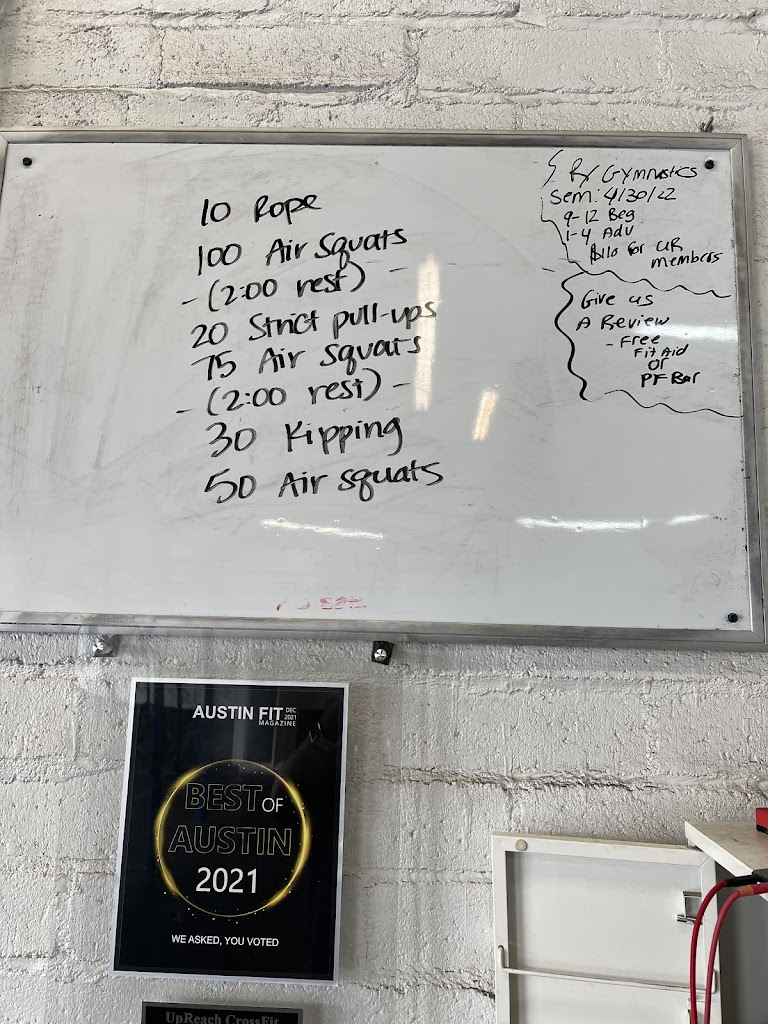 10 Rope
100 Air Squats
- (2:00 rest) -
20 Strict pull-ups
75 Air Squats
- (2:00 rest) -
30 Kipping
50 Air squats
Rx Gymnastics
Sem: 4/30/22
9-12 Beg
1-4 Adv
$110 for UR
members
Give us
A Review
- Free
Fit Aid
or
PF Bar
AUSTIN FIT DEC 2021
MAGAZINE
BEST OF
AUSTIN
2021
WE ASKED, YOU VOTED
UpReach CrossFit